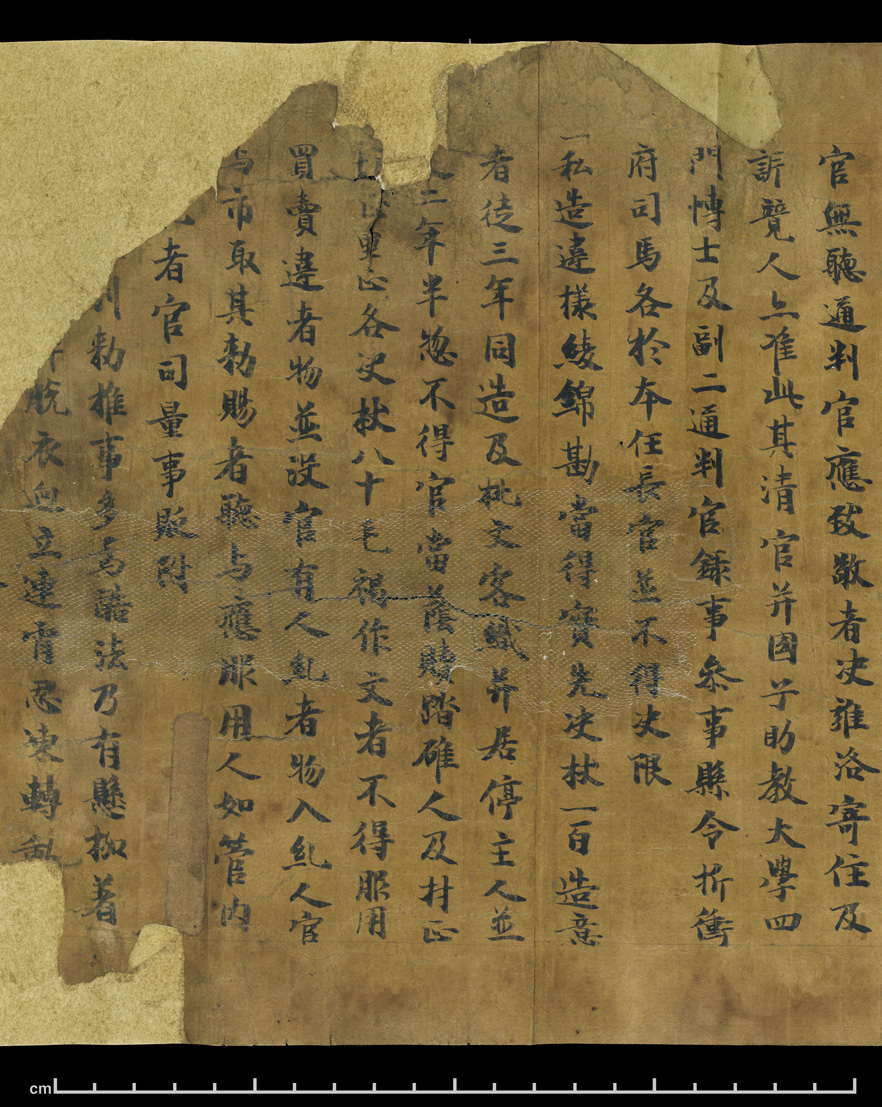 官無聽通判官應致敬者决雍洛寄住及
訴競人亦准此其清官并國子助教大學四
門博士及副二通判官錄事參事縣令折衝
府司馬各於本任長官並不得决限
一私造違樣綾錦勘當得實先决杖一百造意
者徒三年同造及挑文客織并居停主人並
二年半惣不得官當蔭贖踏碓人及村正
里正各决杖八十毛褐作文者不得服用
買賣違者物並没官有人糺者物入糺人官
与市取其勑賜者聽与應服用人如管内
者官司量事貶附
勑推事多為酷法乃有懸枷著
脱衣迥立連宵忍凍轉動